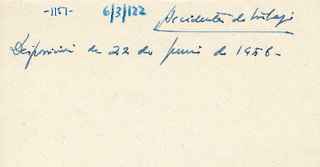 -1151- 6/3/122 Accidentes do trabajo
Disposición de 22 de junio de 1956-